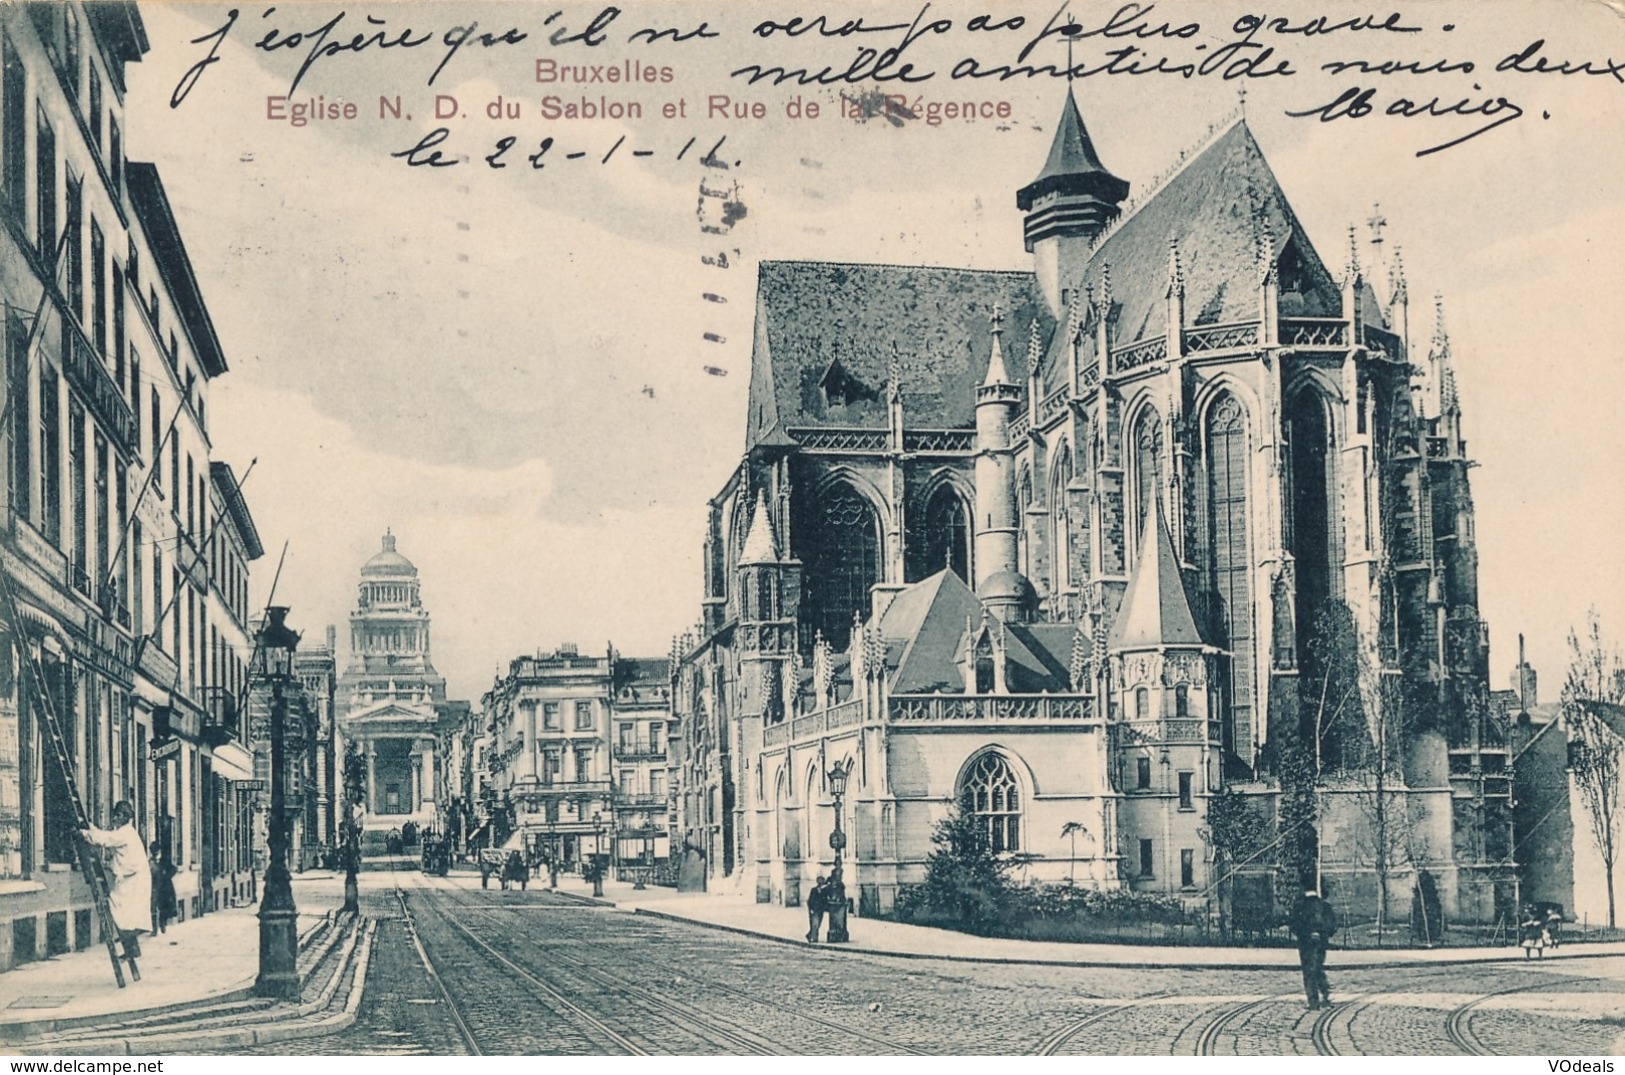 J'espère qu'il ne sera pas plus grave.
Bruxelles
mille amitiés de nous deux
Eglise N. D. du Sablon et Rue de la Régence
Maria.
le 22-1-11.
DENTIST
VOdeals